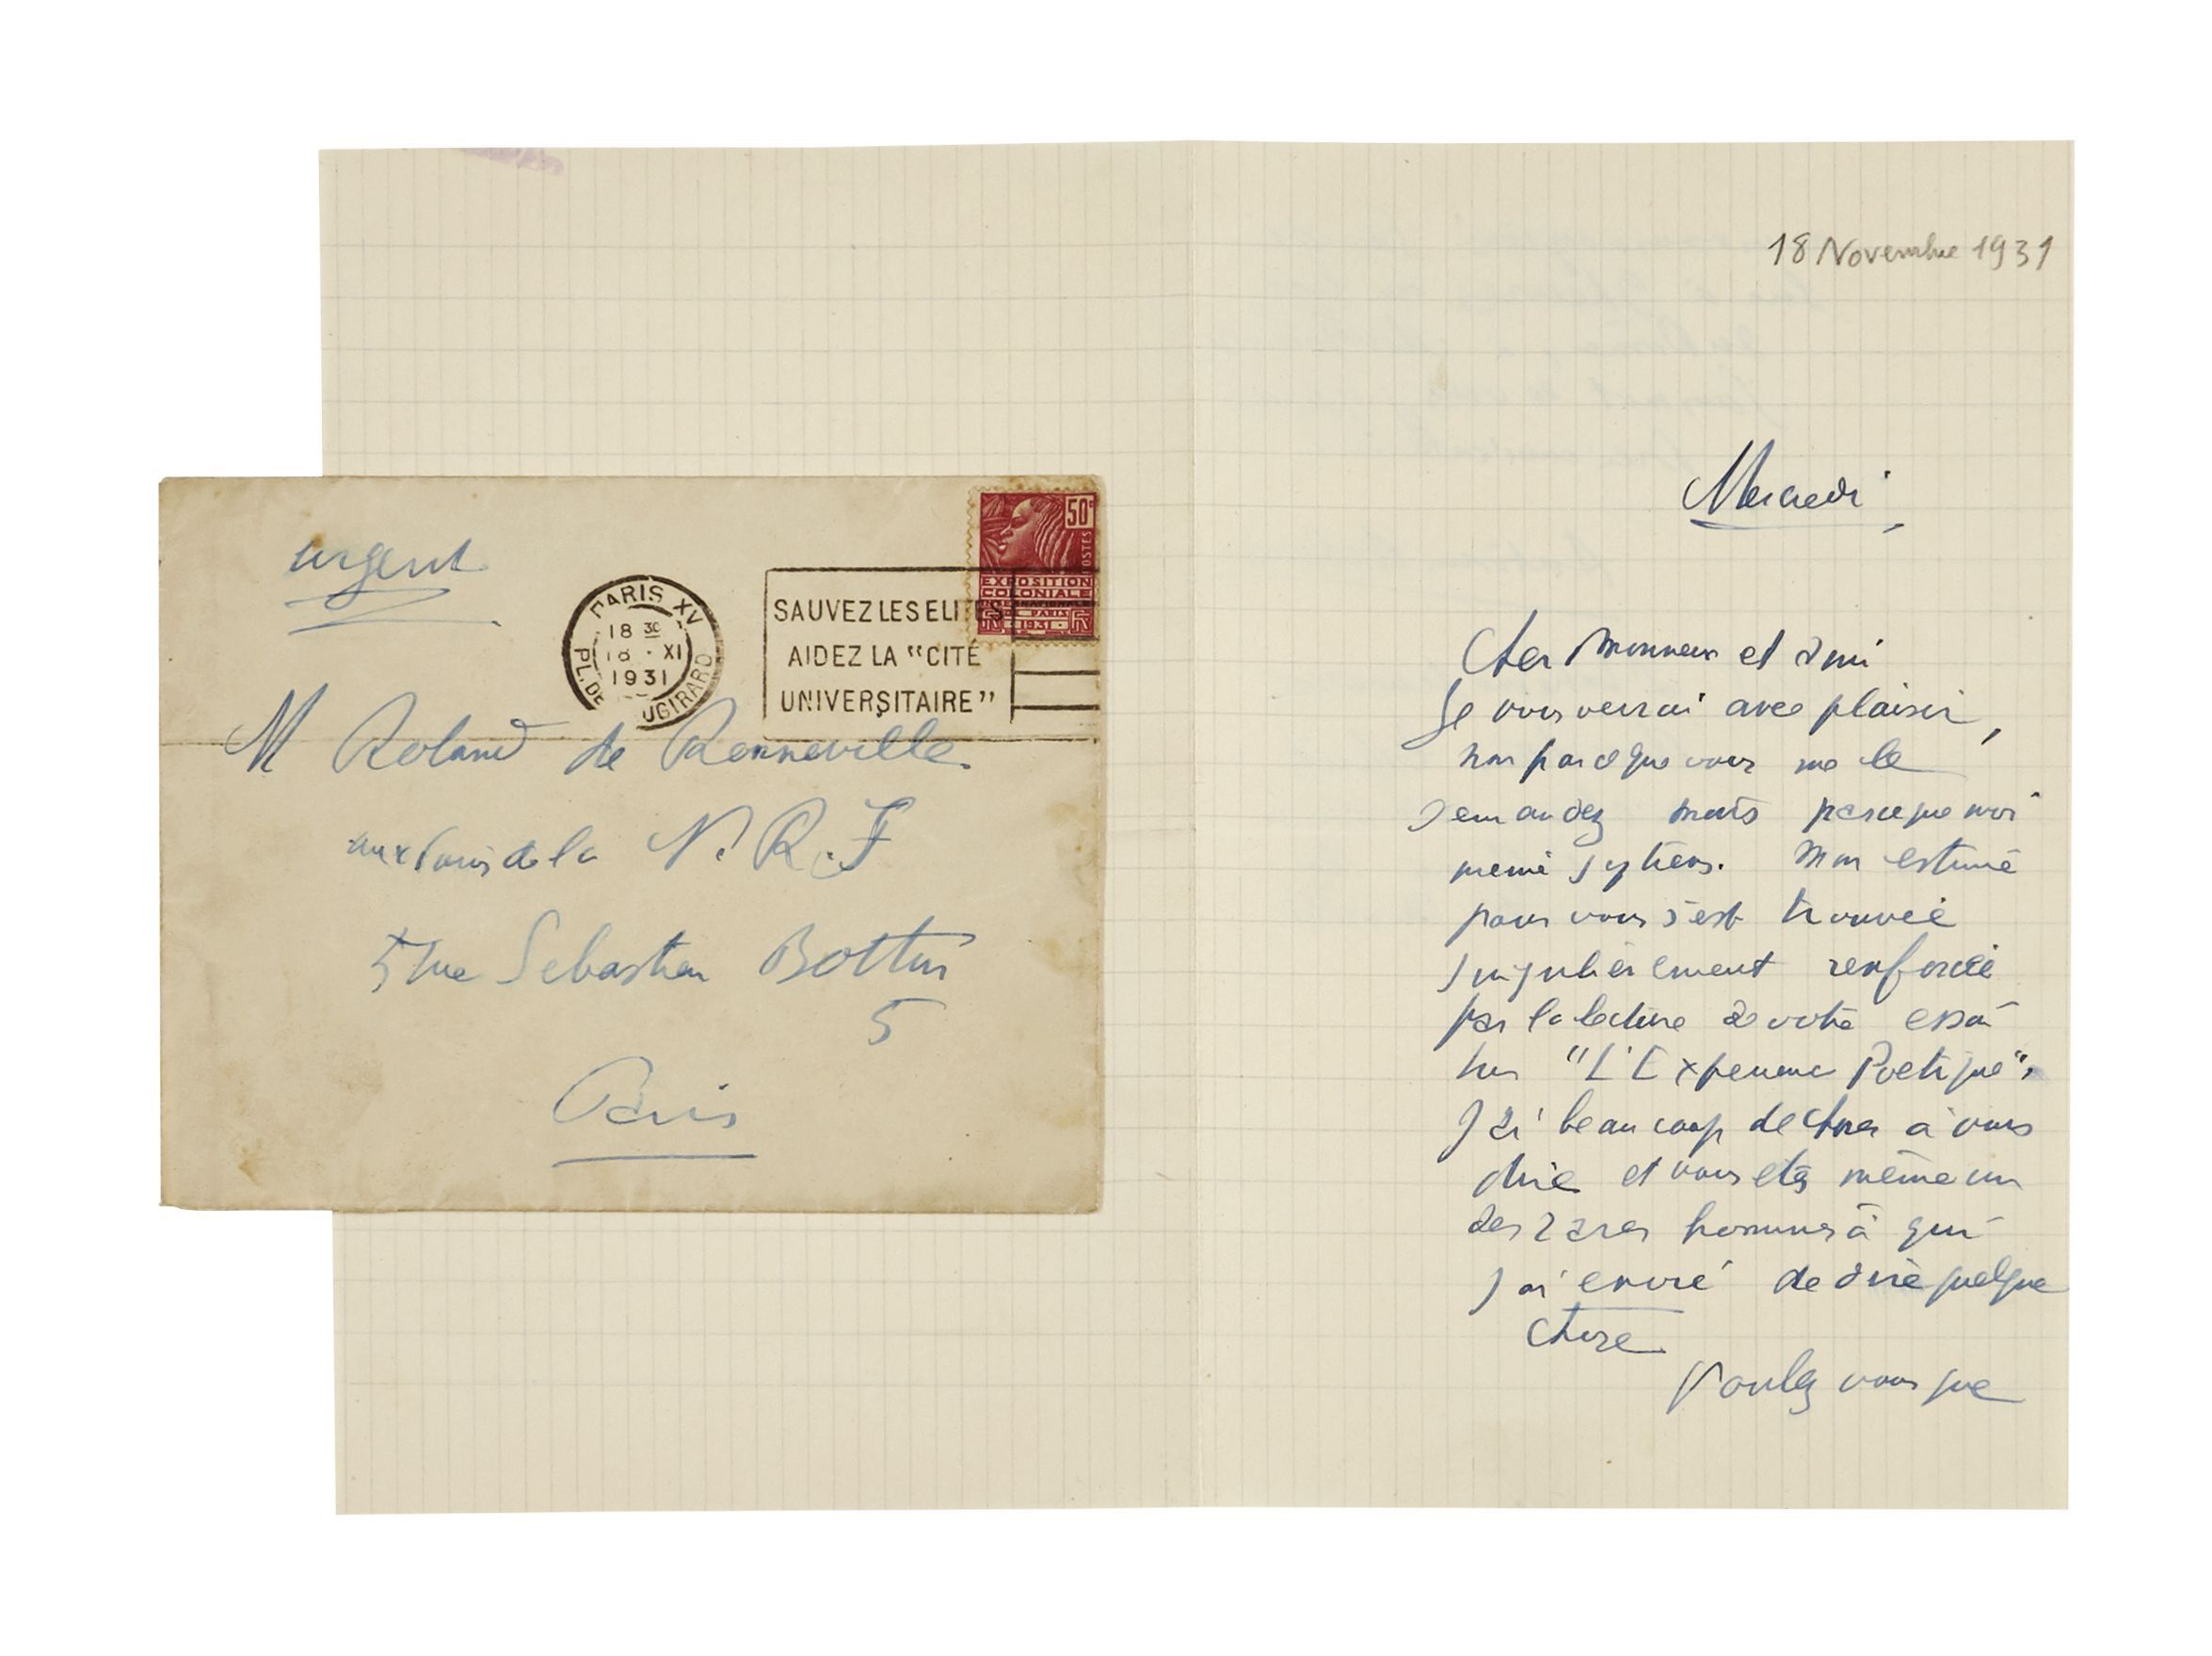 urgent
PARIS XV
18 30
18 · XI
1931
PL. DE VAUGIRARD
SAUVEZ LES ELITES
AIDEZ LA "CITÉ
UNIVERSITAIRE"
50c
POSTES
EXPOSITION
COLONIALE
INTERNATIONALE
DE PARIS
1931
M Roland de Renneville
aux soins de la N. R. F
5 rue Sebastien Bottin
5
Paris
18 Novembre 1931
Mercredi,
Cher Monsieur et ami
Je vous verrai avec plaisir,
non parce que vous me le
demandez mais parce que moi
meme j'y tiens. Mon estime
pour vous s'est trouvée
singulièrement renforcée
par la lecture de votre essai
sur "L'Experience Poetique".
J'ai beaucoup de choses à vous
dire et vous etes même un
des rares hommes à qui
j'ai envie de dire quelque
chose
Voulez vous que